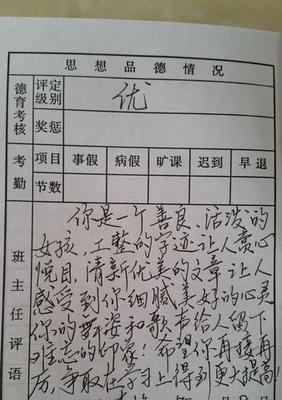 思想品德情况
德育考核
评定级别
优
奖惩
考勤
项目 事假 病假 旷课 迟到 早退
节数
班主任评语
你是一个善良、活泼的
女孩,工整的字迹让人赏心
悦目,清新优美的文章让人
感受到你细腻美好的心灵
你的舞姿和歌声给人留下
难忘的印象!希望你再接再
厉,争取在学习上得到更大提高!